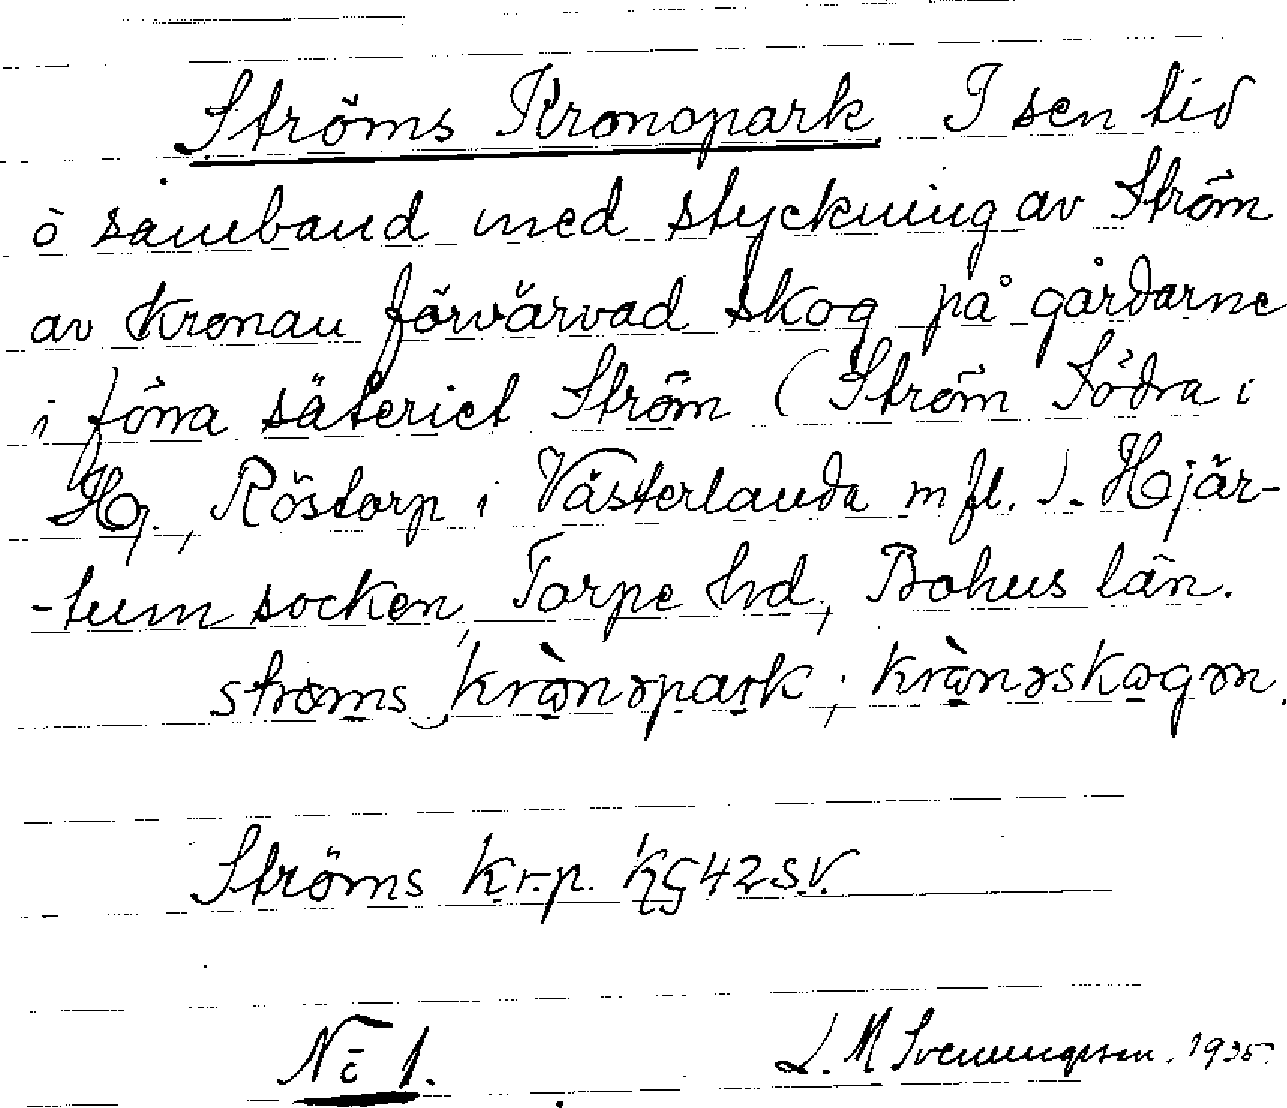 Ströms Kronopark I sen tid
i samband med styckning av Ström
av kronan förvärvad skog på gårdarne
i förra säteriet Ström (Ström Södra i
Hj., Röstorp i Västerlanda m fl.). Hjär-
-tum socken, Torpe hd, Bohus län.
Ströms kr.p. KG42SV.
No 1.
L. M Svenungsson. 1935.